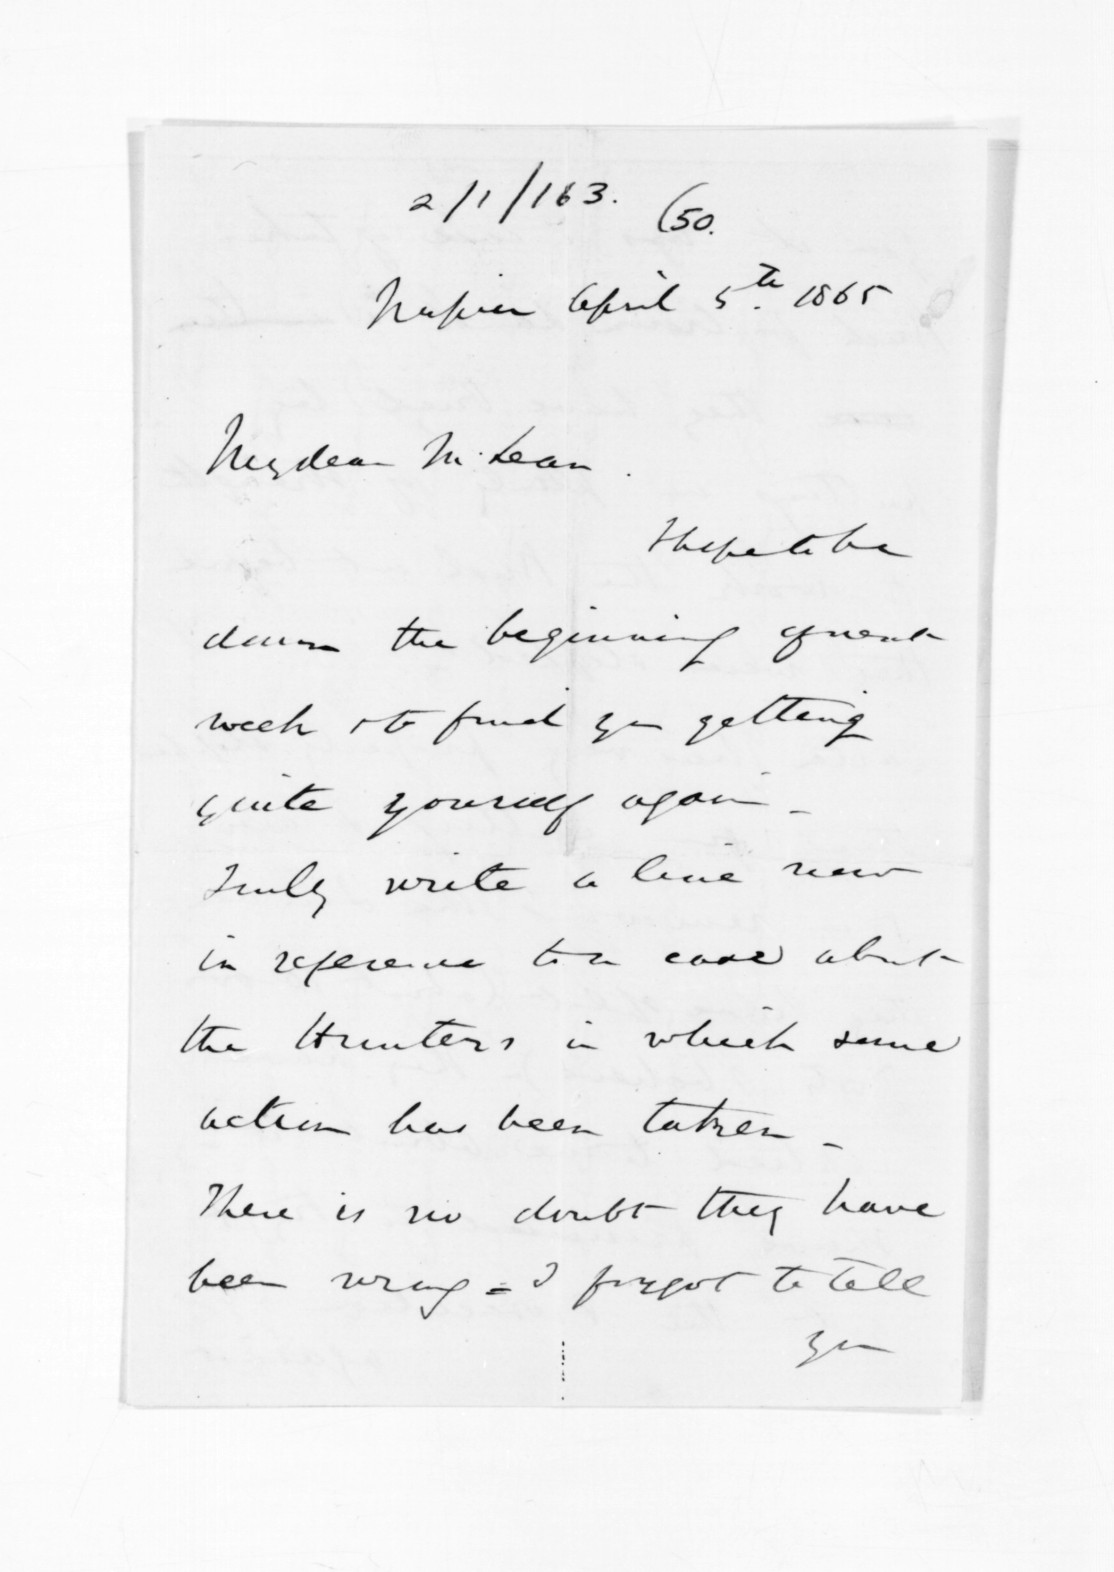 2/1/163. (50.
Napier April 5th. 1865
My dear McLean.
I hope to be
down the beginning of next
week & to find you getting
quite yourself again -
I only write a line now
in reference to a case about
the Hunters in which some
action has been taken -
There is no doubt they have
been wrong = I forgot to tell
you